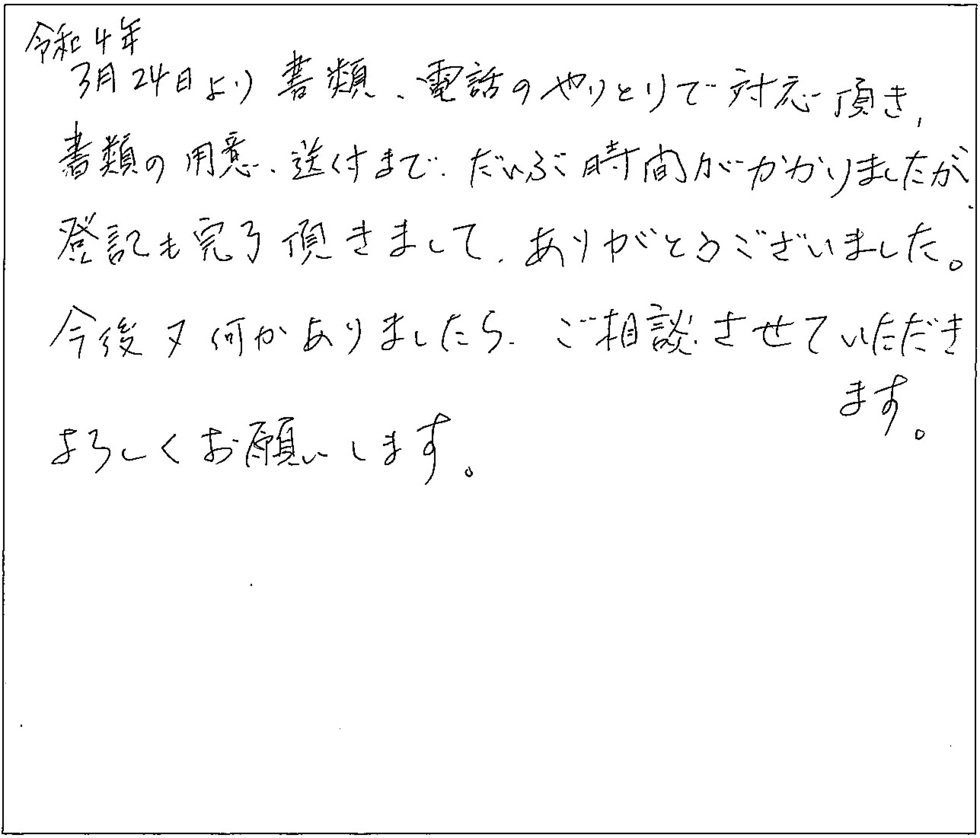 令和4年
3月24日より書類、電話のやりとりで対応頂き、
書類の用意、送付まで、だいぶ時間がかかりましたが、
登記も完了頂きまして、ありがとうございました。
今後又何かありましたら、ご相談させていただき
ます。
よろしくお願いします。